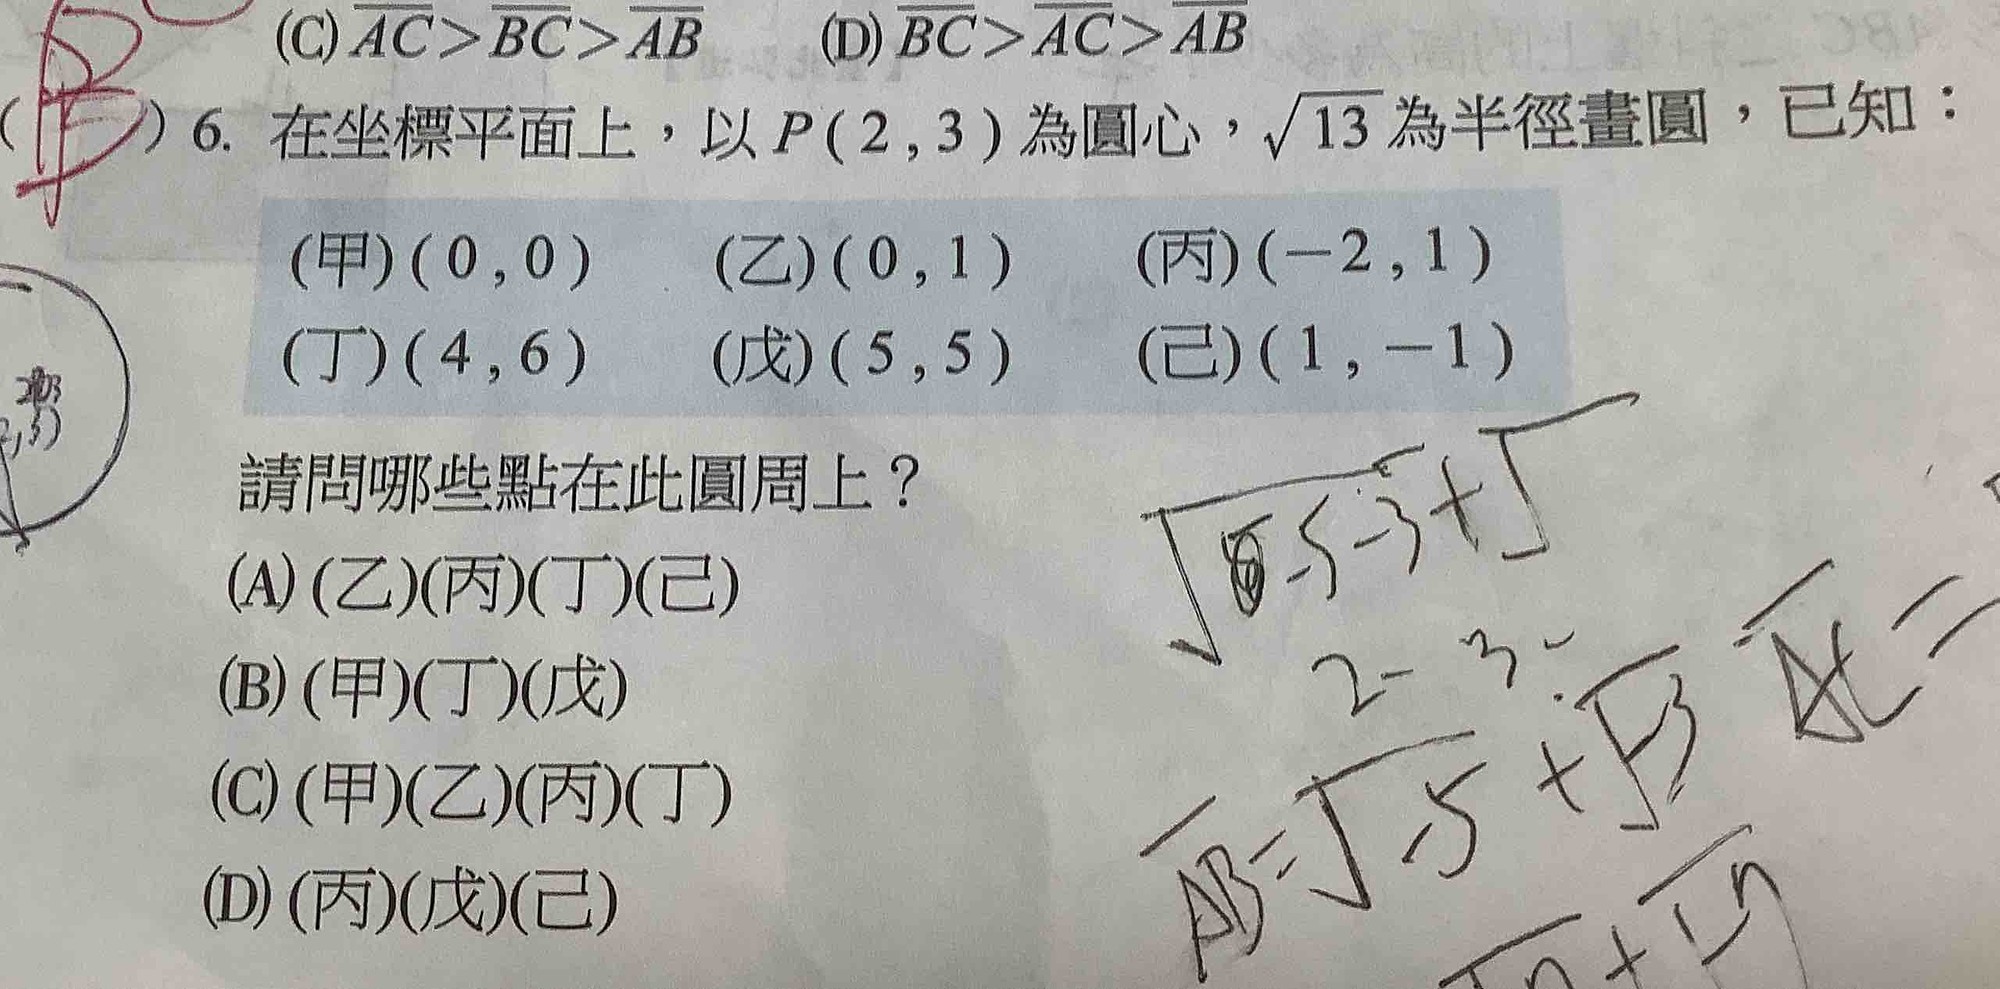 (C) AC>BC>AB (D) BC>AC>AB
( B ) 6. 在坐標平面上，以 P ( 2 , 3 ) 為圓心，√13 為半徑畫圓，已知：
(甲) ( 0 , 0 ) (乙) ( 0 , 1 ) (丙) (－2 , 1 )
(丁) ( 4 , 6 ) (戊) ( 5 , 5 ) (己) ( 1 , －1 )
請問哪些點在此圓周上？
(A) (乙)(丙)(丁)(己)
(B) (甲)(丁)(戊)
(C) (甲)(乙)(丙)(丁)
(D) (丙)(戊)(己)
2- 3
AB=√-5 + √-3
AC =